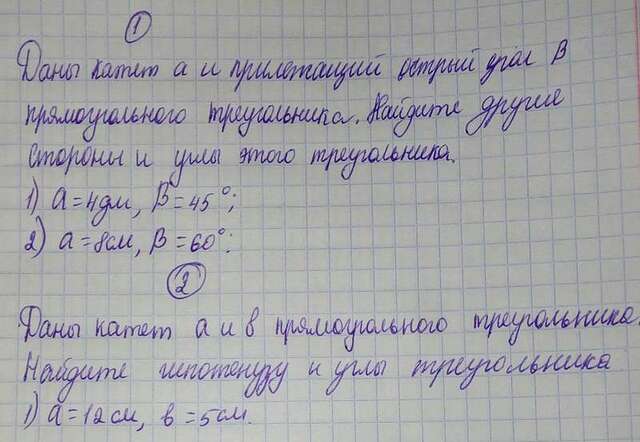 1
Даны катет а и прилежащий острый угол В
прямоугольного треугольника. Найдите другие
стороны и углы этого треугольника.
1) а=4дм, В=45°;
2) а=8см, В=60°:
2
Даны катет а и в прямоугольного треугольника.
Найдите гипотенузу и углы треугольника
1) а=12см, в=5см.